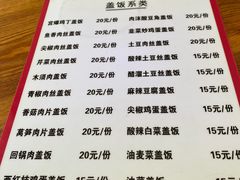 盖饭系类
宫爆鸡丁盖饭 20元/份 肉沫酸豆角盖饭 20元/份
鱼香肉丝盖饭 20元/份 韭菜炒鸡蛋盖饭 20元/份
尖椒肉丝盖饭 20元/份 土豆肉丝盖饭 20元/份
芹菜肉丝盖饭 20元/份 酸辣土豆丝盖饭 15元/份
木须肉盖饭 20元/份 醋溜土豆丝盖饭 15元/份
青椒肉丝盖饭 20元/份 麻辣豆腐盖饭 15元/份
香菇肉片盖饭 20元/份 尖椒鸡蛋盖饭 15元/份
莴笋肉片盖饭 20元/份 酸辣白菜盖饭 15元/份
回锅肉盖饭 20元/份 油麦菜盖饭 15元/份
西红柿鸡蛋盖饭 15元/份